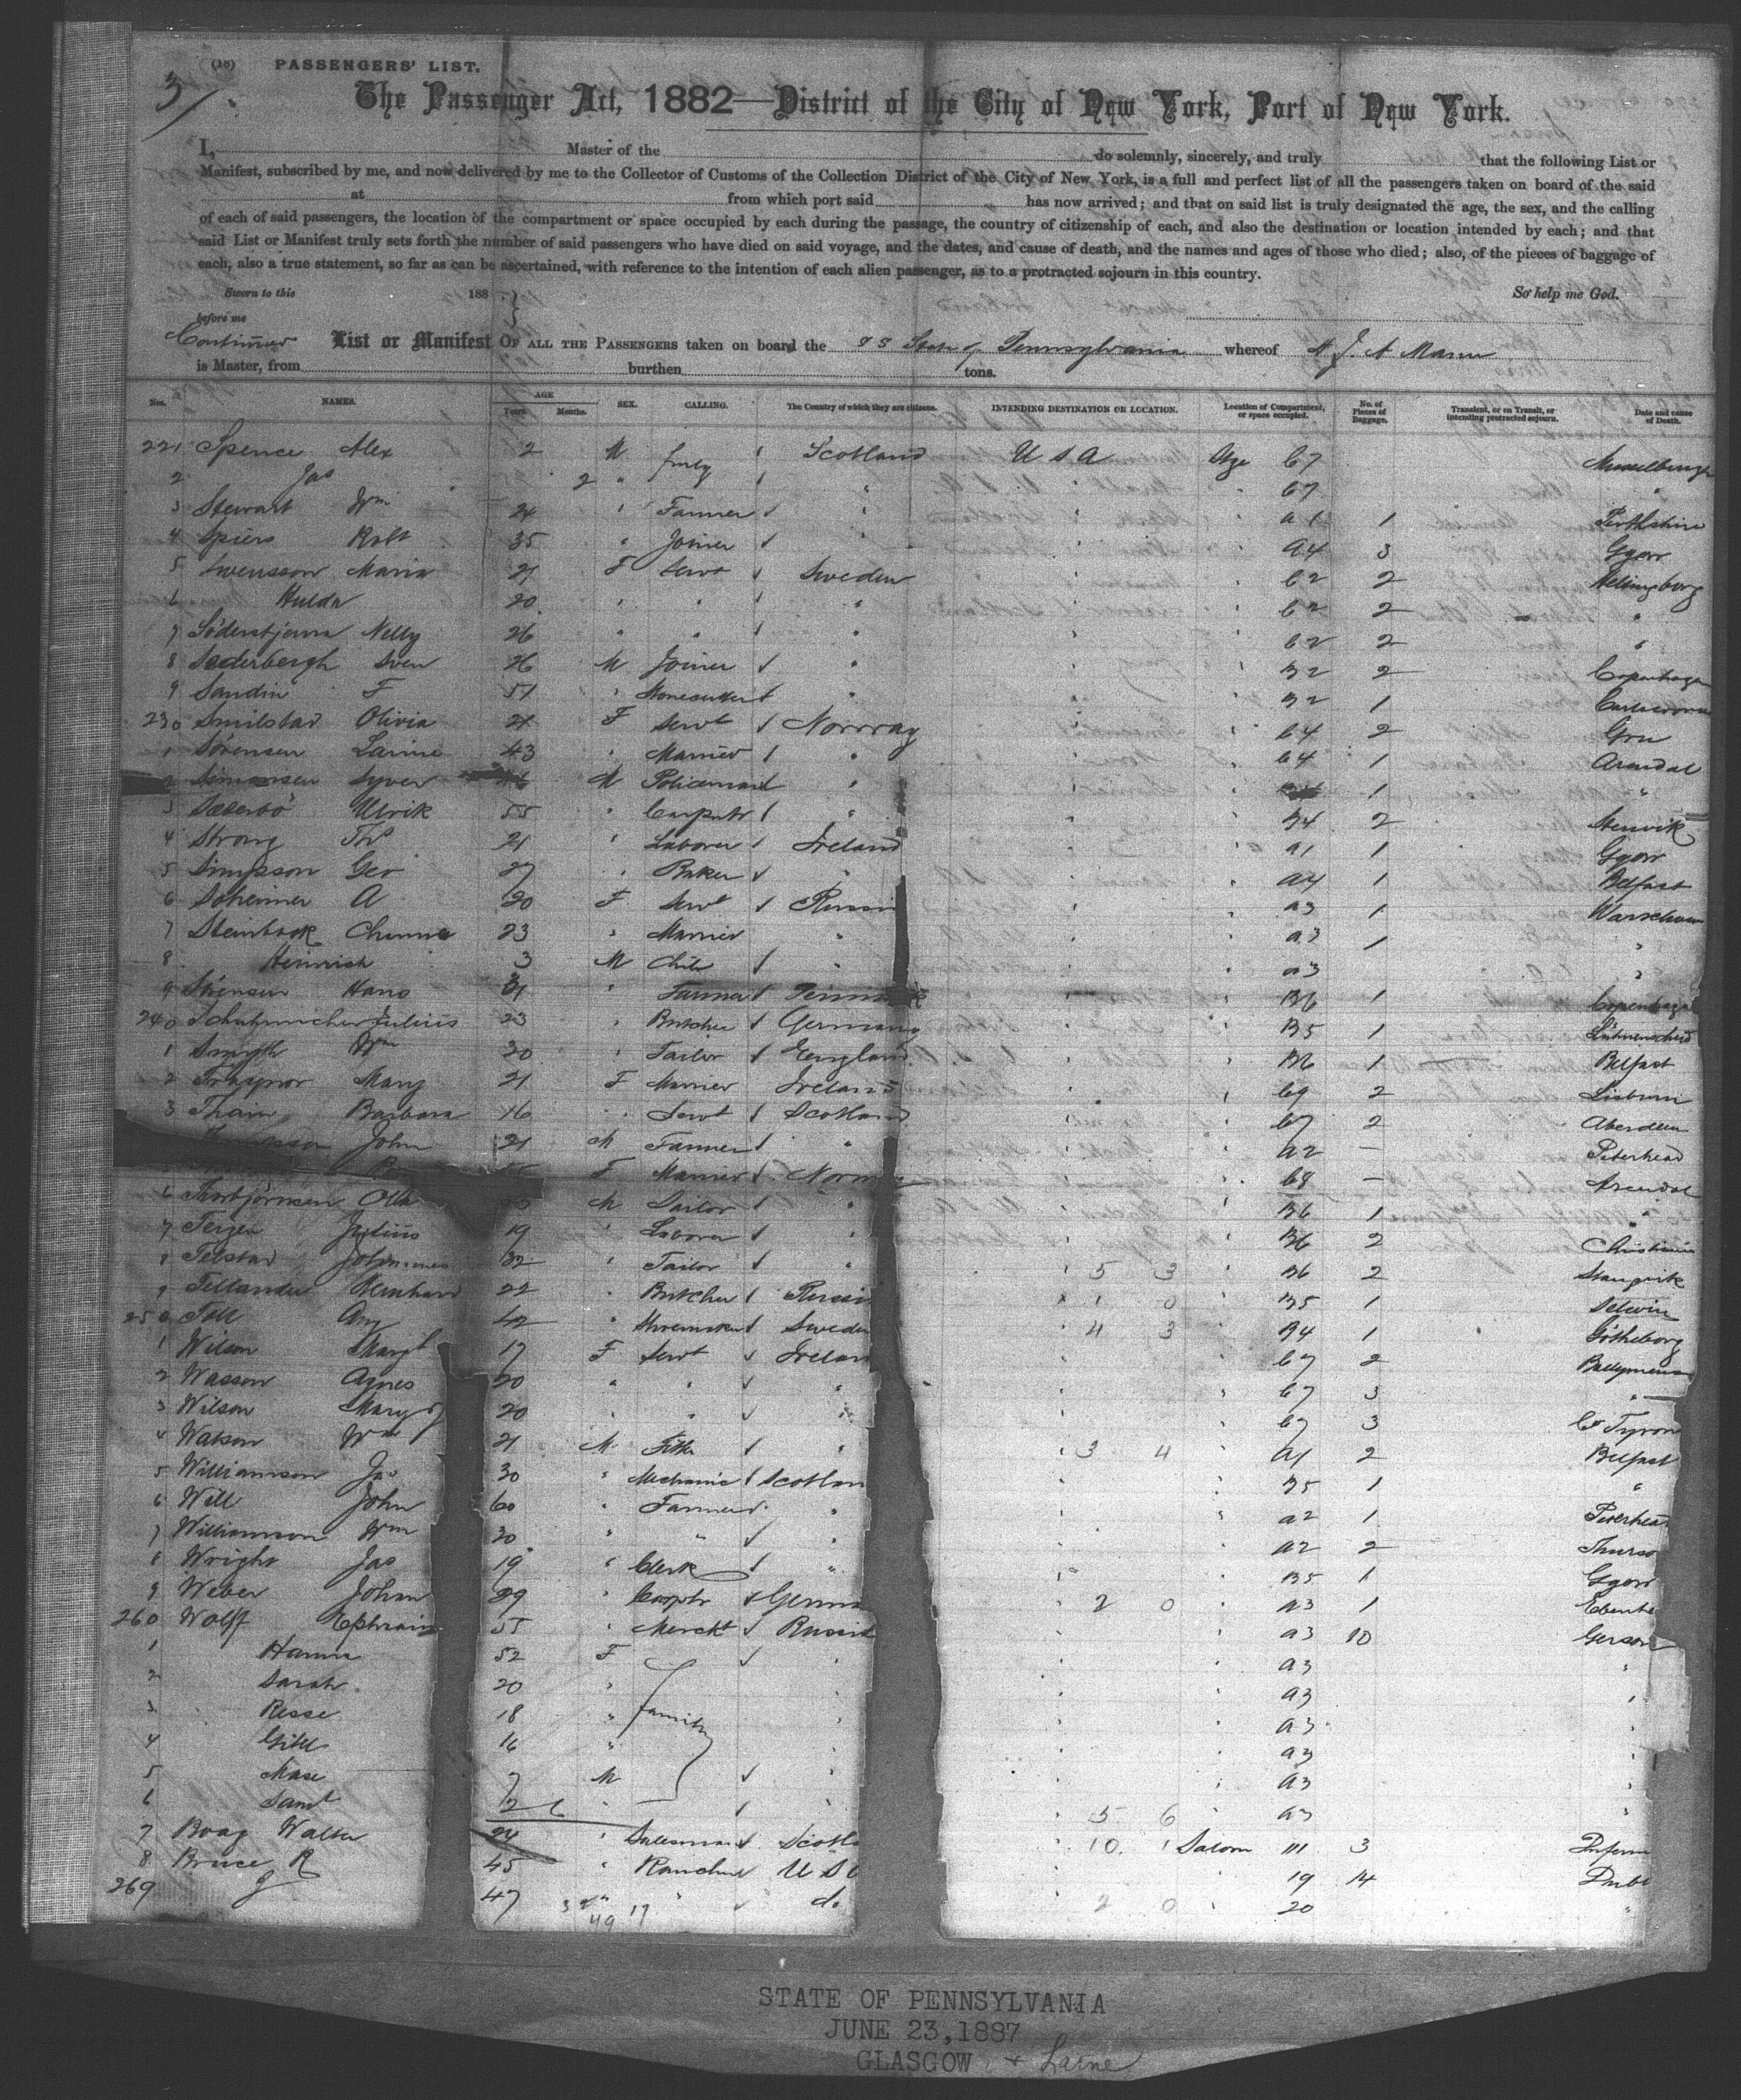 3/
(18) PASSENGERS' LIST.
The Passenger Act, 1882—District of the City of New York, Port of New York.
I, Master of the do solemnly, sincerely, and truly that the following List or
Manifest, subscribed by me, and now delivered by me to the Collector of Customs of the Collection District of the City of New York, is a full and perfect list of all the passengers taken on board of the said
at from which port said has now arrived; and that on said list is truly designated the age, the sex, and the calling
of each of said passengers, the location of the compartment or space occupied by each during the passage, the country of citizenship of each, and also the destination or location intended by each; and that
said List or Manifest truly sets forth the number of said passengers who have died on said voyage, and the dates, and cause of death, and the names and ages of those who died; also, of the pieces of baggage of
each, also a true statement, so far as can be ascertained, with reference to the intention of each alien passenger, as to a protracted sojourn in this country.
Sworn to this 188 So help me God.
before me
Continued List or Manifest OF ALL THE PASSENGERS taken on board the SS State of Pennsylvania whereof A. J. A Mann
is Master, from burthen tons.
Nos. NAMES. AGE Years. Months. SEX. CALLING. The Country of which they are citizens. INTENDING DESTINATION OR LOCATION. Location of Compartment, or space occupied. No. of Pieces of Baggage. Transient, or on Transit, or intending protracted sojourn. Date and cause of Death.
221 Spence Alex 2 M Scotland U S A Stge C7 Musselburgh
2 Jas 2 " " C7 "
3 Stewart Wm 24 " Farmer " A1 1 Perthshire
4 Spiers Robt 35 " Joiner " A4 3 Ggow
5 Swensson Maria 21 F Servt Sweden C2 2 Helsingborg
6 Hulda 20 " " " C2 2 "
7 Nelly 26 " " " C2 2 "
8 Soderbergh Sven 26 M Joiner " B2 2 Copenhagen
9 Sandin F 51 " Stonecutter " B2 1
230 Smilstad Olivia 21 F Servt Norway C4 2 Gru
1 Sörensen Larine 43 " Married " C4 1 Arendal
2 Simonsen Syver M Policeman " 1 "
3 Ulrik 55 " Carpntr " B4 2
4 Strong Thos 21 " Laborer Ireland A1 1 Ggow
5 Simpson Geo 27 " Baker " A4 1 Belfast
6 A 20 F Servt Russia A3 1 Warschau
7 23 " Married " A3 1 "
8 Heinrich 3 M Child " A3 "
9 Sörensen Hans 31 " Farmer Denmark B6 1 Copenhagen
240 Julius 23 " Butcher Germany B5 1
1 Smyth Wm 30 " Tailor England B6 1 Belfast
2 Traynor Mary 21 F Married Ireland C9 2 Lisburn
3 Thain Barbara 16 " Servt Scotland C7 2 Aberdeen
John 21 M Farmer " A2 — Peterhead
F Married Norway C8 — Arendal
6 Thorbjörnsen M Sailor " B6 1 "
7 Julius 19 " Laborer " B6 2 Christiania
8 Telstad Johannes 32 " Tailor " 5 3 B6 2
9 22 " Butcher Russi 1 0 B5 1
250 Toll 42 " Shoemaker Swede 4 3 B4 1 Götheborg
1 Wilson Margt 17 F Servt Irelan C7 2 Ballymena
2 Wasson Agnes 20 " " " C7 3 "
3 Wilson Mary 20 " " " C7 3 Co Tyron
4 Watson Wm 21 M " 3 4 A1 2 Belfast
5 Williamson Jas 30 " Mechanic Scotlan B5 1 "
6 Will John 60 " Farmer " A2 1 Peterhead
7 Williamson Wm 30 " " " A2 2 Thurso
8 Wright Jas 19 " Clerk " B5 1 Ggow
9 Weber Johan 29 " Carptr Germa 2 0 A3 1
260 Wolff Ephraim 55 " Merckt Russia A3 10 Gerson
1 Hanna 52 F " A3 "
2 Sarah 20 " " A3 "
3 Resse 18 " family " A3 "
4 Gittel 16 " " A3 "
5 7 M " A3 "
6 Saml " 5 6 A3 "
7 Boag Walter 24 " Salesman Scotla 10 1 Saloon 3
8 Bruce R 45 " U S 19 14 Dubl
269 J 47 " do 2 0 20 "
49 17
STATE OF PENNSYLVANIA
JUNE 23, 1887
GLASGOW + Larne